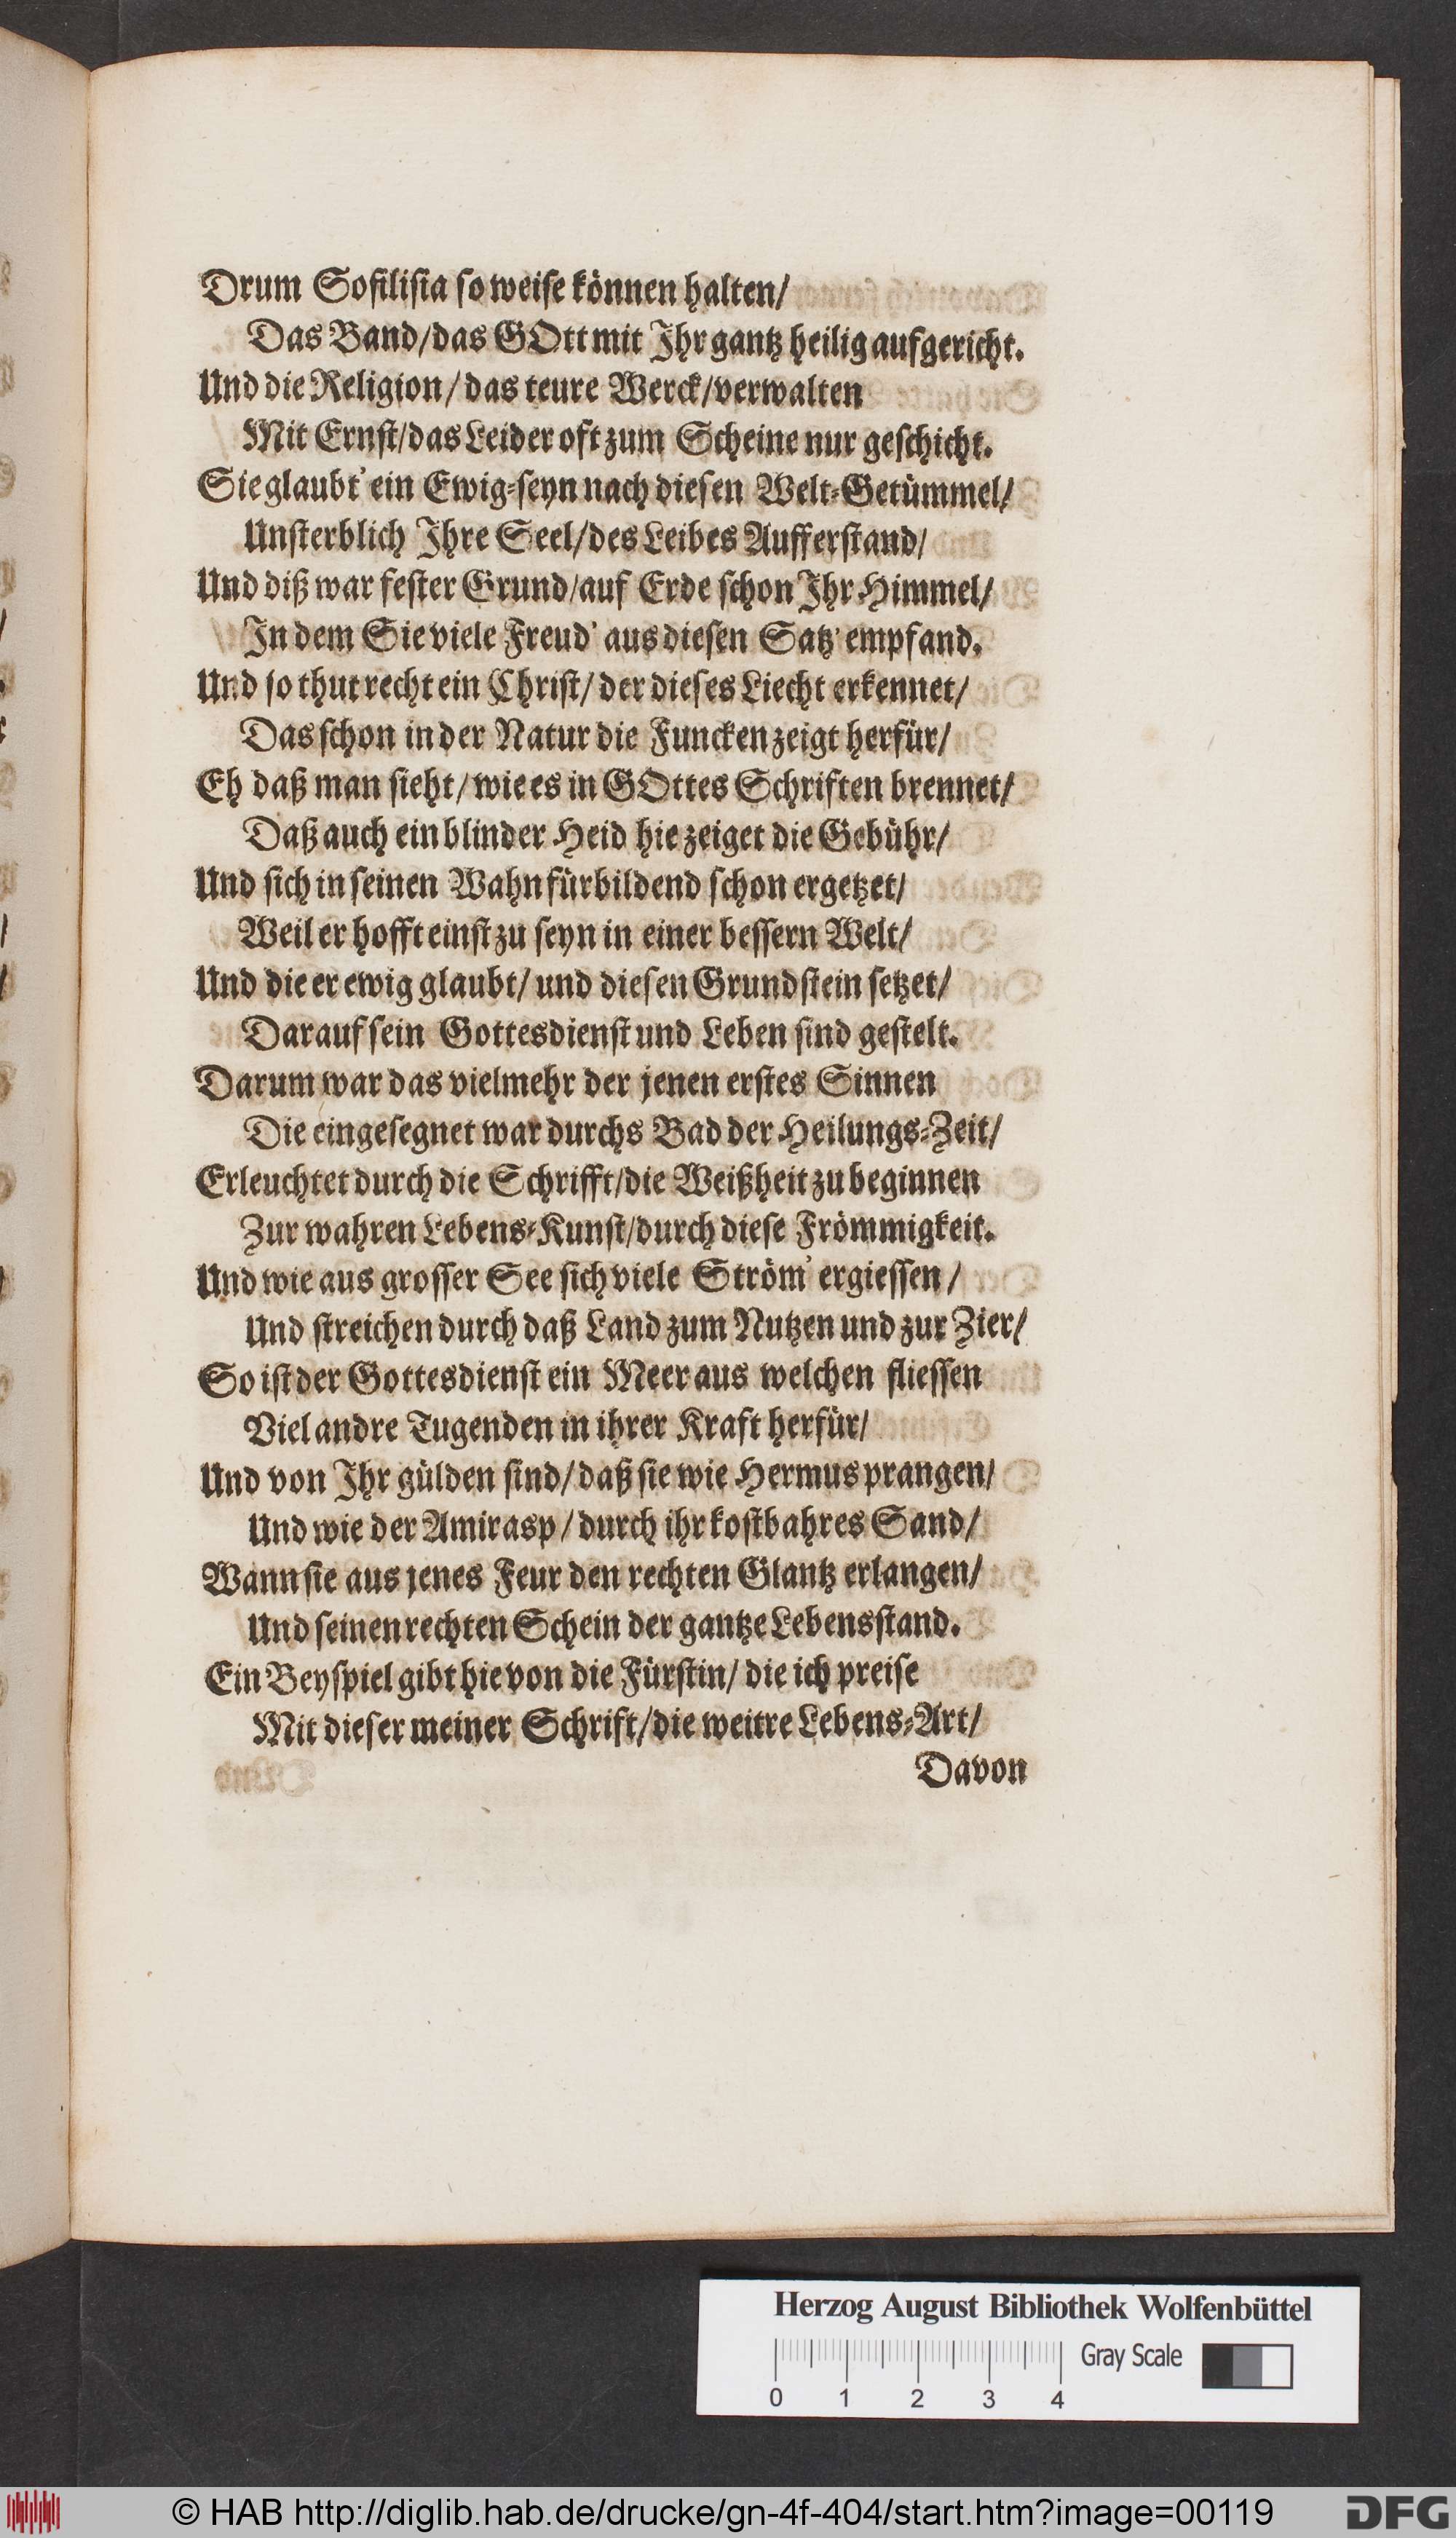 Drum Sofilisia so weise können halten/
Das Band/das GOtt mit Ihr gantz heilig aufgericht.
Und die Religion/das teure Werck/verwalten
Mit Ernst/das Leider oft zum Scheine nur geschicht.
Sie glaubt' ein Ewig-seyn nach diesen Welt-Getümmel/
Unsterblich Ihre Seel/des Leibes Aufferstand/
Und diß war fester Grund/auf Erde schon Ihr Himmel/
In dem Sie viele Freud' aus diesen Satz' empfand.
Und so thut recht ein Christ/der dieses Liecht erkennet/
Das schon in der Natur die Funcken zeigt herfür/
Eh daß man sieht/wie es in GOttes Schriften brennet/
Daß auch ein blinder Heid hie zeiget die Gebühr/
Und sich in seinen Wahn fürbildend schon ergetzet/
Weil er hofft einst zu seyn in einer bessern Welt/
Und die er ewig glaubt/und diesen Grundstein setzet/
Darauf sein Gottesdienst und Leben sind gestelt.
Darum war das vielmehr der jenen erstes Sinnen
Die eingesegnet war durchs Bad der Heilungs-Zeit/
Erleuchtet durch die Schrifft/die Weißheit zu beginnen
Zur wahren Lebens-Kunst/durch diese Frömmigkeit.
Und wie aus grosser See sich viele Ström' ergiessen/
Und streichen durch daß Land zum Nutzen und zur Zier/
So ist der Gottesdienst ein Meer aus welchen fliessen
Viel andre Tugenden in ihrer Kraft herfür/
Und von Ihr gülden sind/daß sie wie Hermus prangen/
Und wie der Amirasp/durch ihr kostbahres Sand/
Wann sie aus jenes Feur den rechten Glantz erlangen/
Und seinen rechten Schein der gantze Lebensstand.
Ein Beyspiel gibt hievon die Fürstin/die ich preise
Mit dieser meiner Schrift/die weitre Lebens-Art/
Davon
Herzog August Bibliothek Wolfenbüttel
Gray Scale
0 1 2 3 4
© HAB http://diglib.hab.de/drucke/gn-4f-404/start.htm?image=00119
DFG